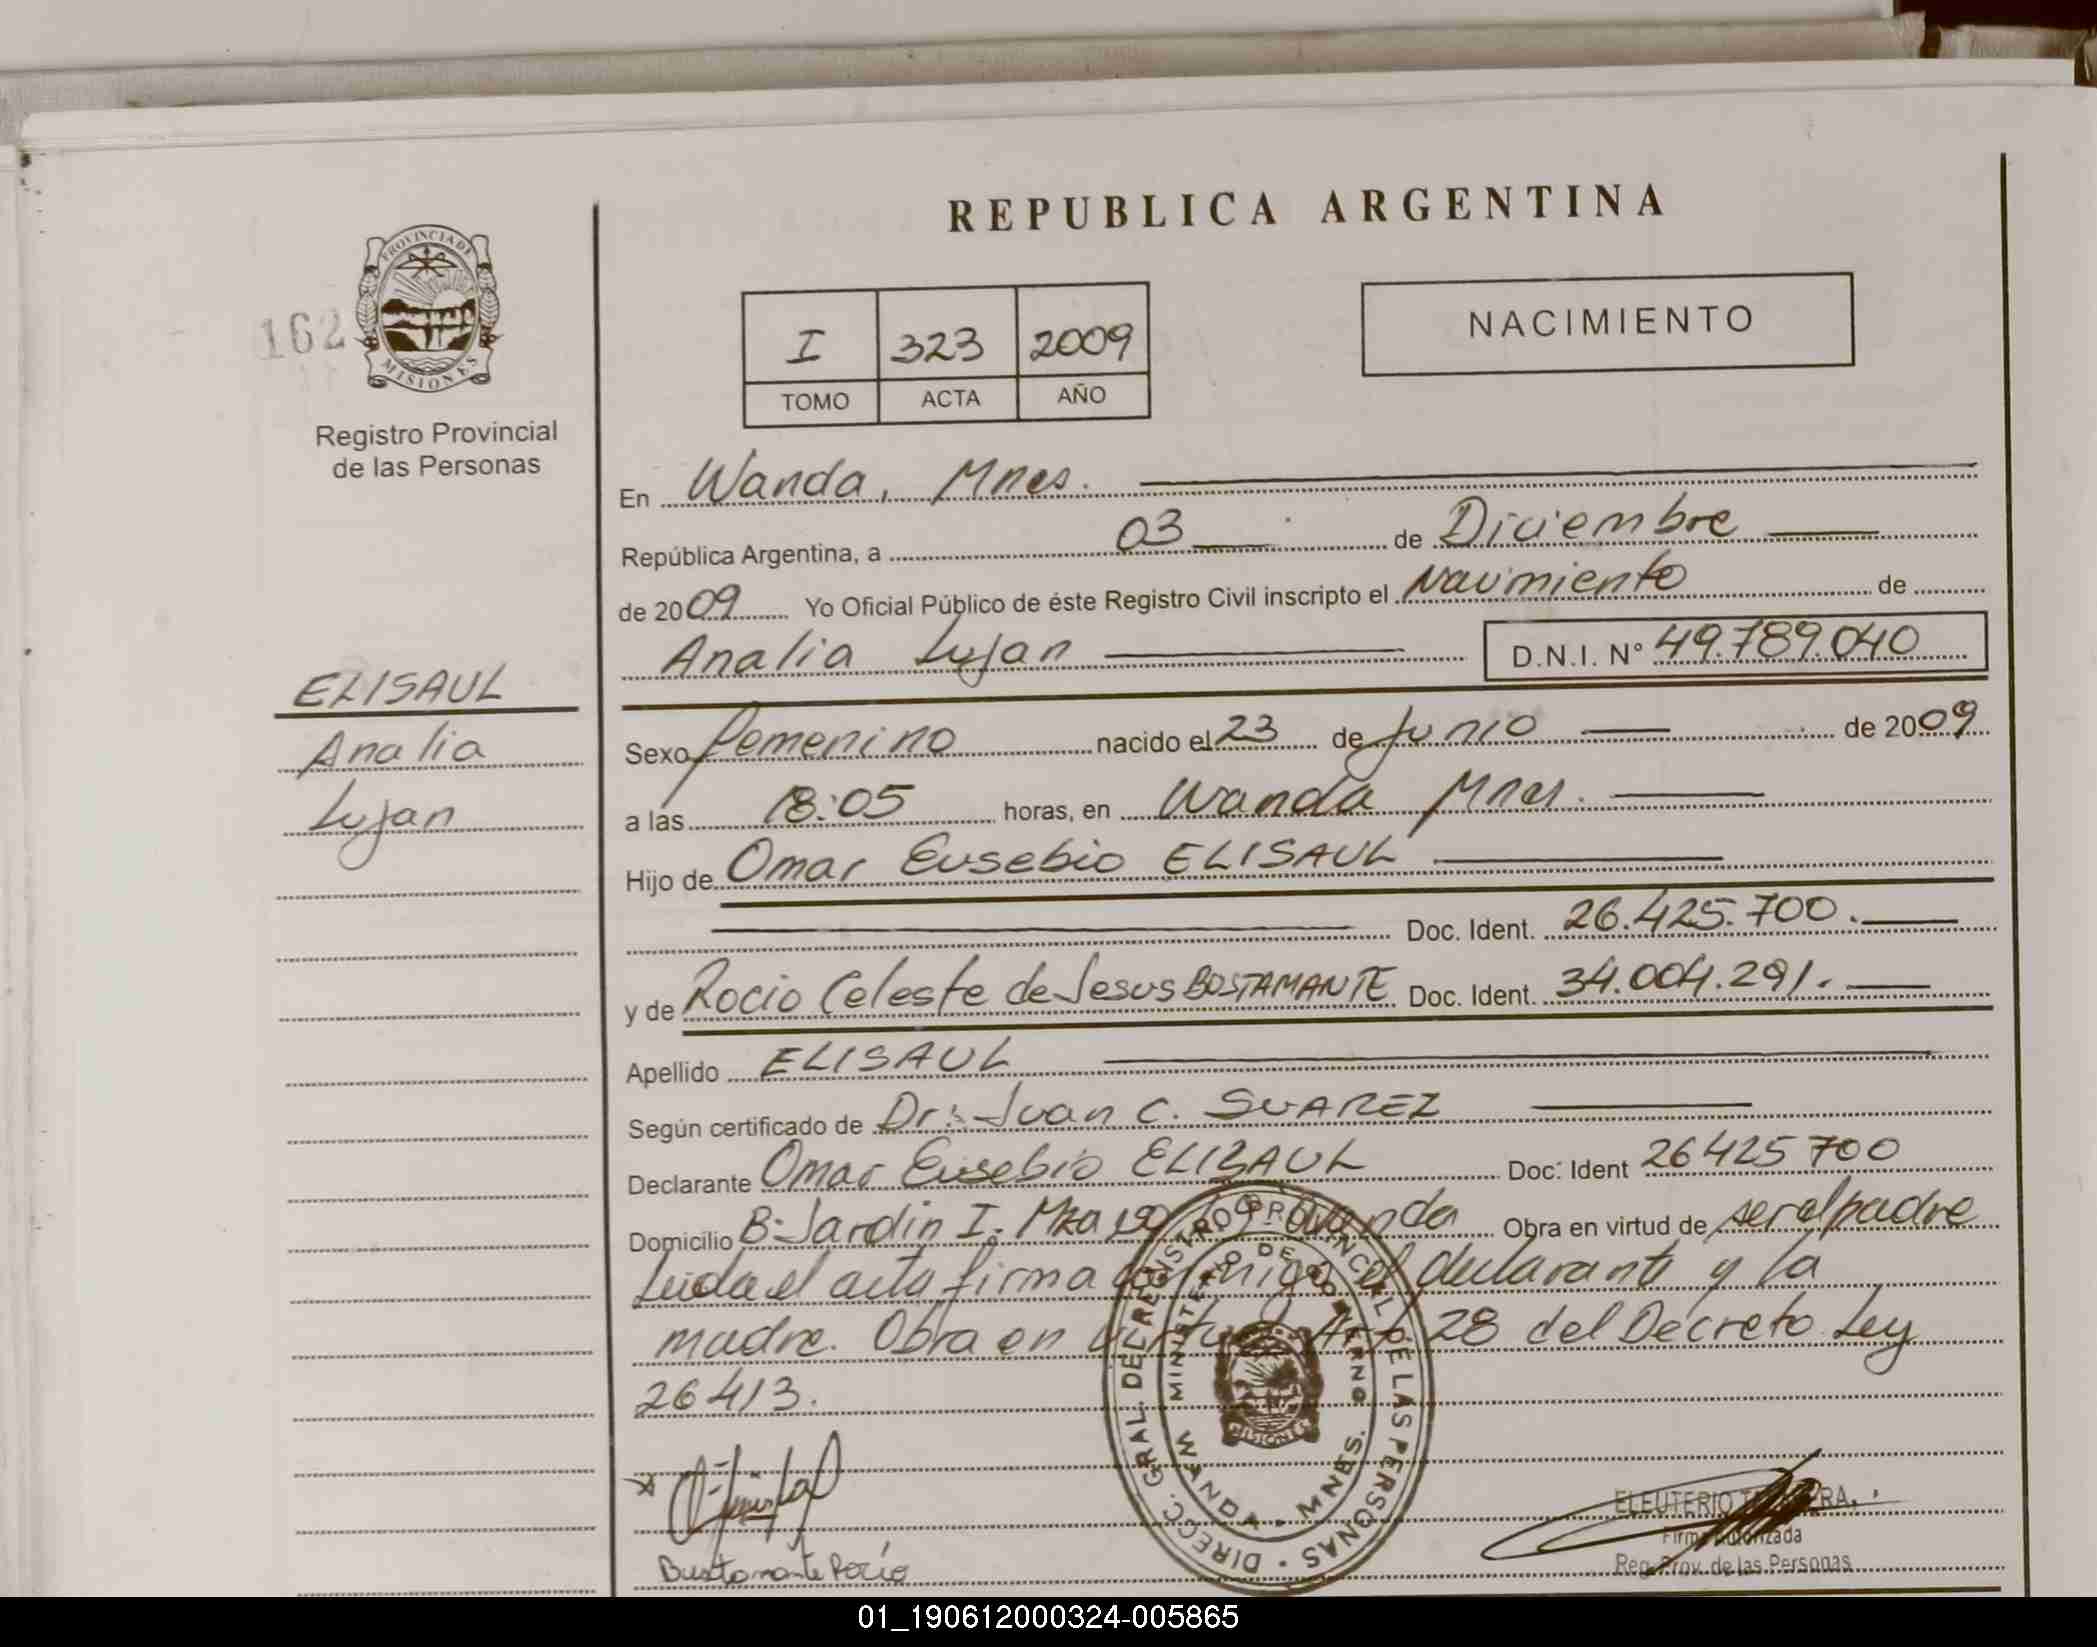 REPUBLICA ARGENTINA
PROVINCIA DE
MISIONES
162
Registro Provincial
de las Personas
I 323 2009
TOMO ACTA AÑO
NACIMIENTO
En Wanda, Mnes.
República Argentina, a 03 de Diciembre
de 2009 Yo Oficial Público de éste Registro Civil inscripto el Nacimiento de
Analia Lujan D.N.I. N° 49.789.040
ELISAUL
Analia
Lujan
Sexo femenino nacido el 23 de Junio de 2009
a las 18:05 horas, en Wanda Mnes.
Hijo de Omar Eusebio ELISAUL
Doc. Ident. 26.425.700.
y de Rocio Celeste de Jesus BUSTAMANTE Doc. Ident. 34.004.291.
Apellido ELISAUL
Según certificado de Dr: Juan C. SUAREZ
Declarante Omar Eusebio ELISAUL Doc: Ident 26425700
Domicilio B: Jardin I. Mza Wanda Obra en virtud de ser el padre
Leida el acta firma conmigo el declarante y la
madre. Obra en virtud Art 28 del Decreto Ley
26413.
DIRECC. GRAL. DEL REGISTRO PROVINCIAL DE LAS PERSONAS
MINISTERIO DE GOBIERNO
MISIONES
WANDA - MNES.
Bustamante Rocío
ELEUTERIO
Firma Autorizada
Reg. Prov. de las Personas
01_190612000324-005865